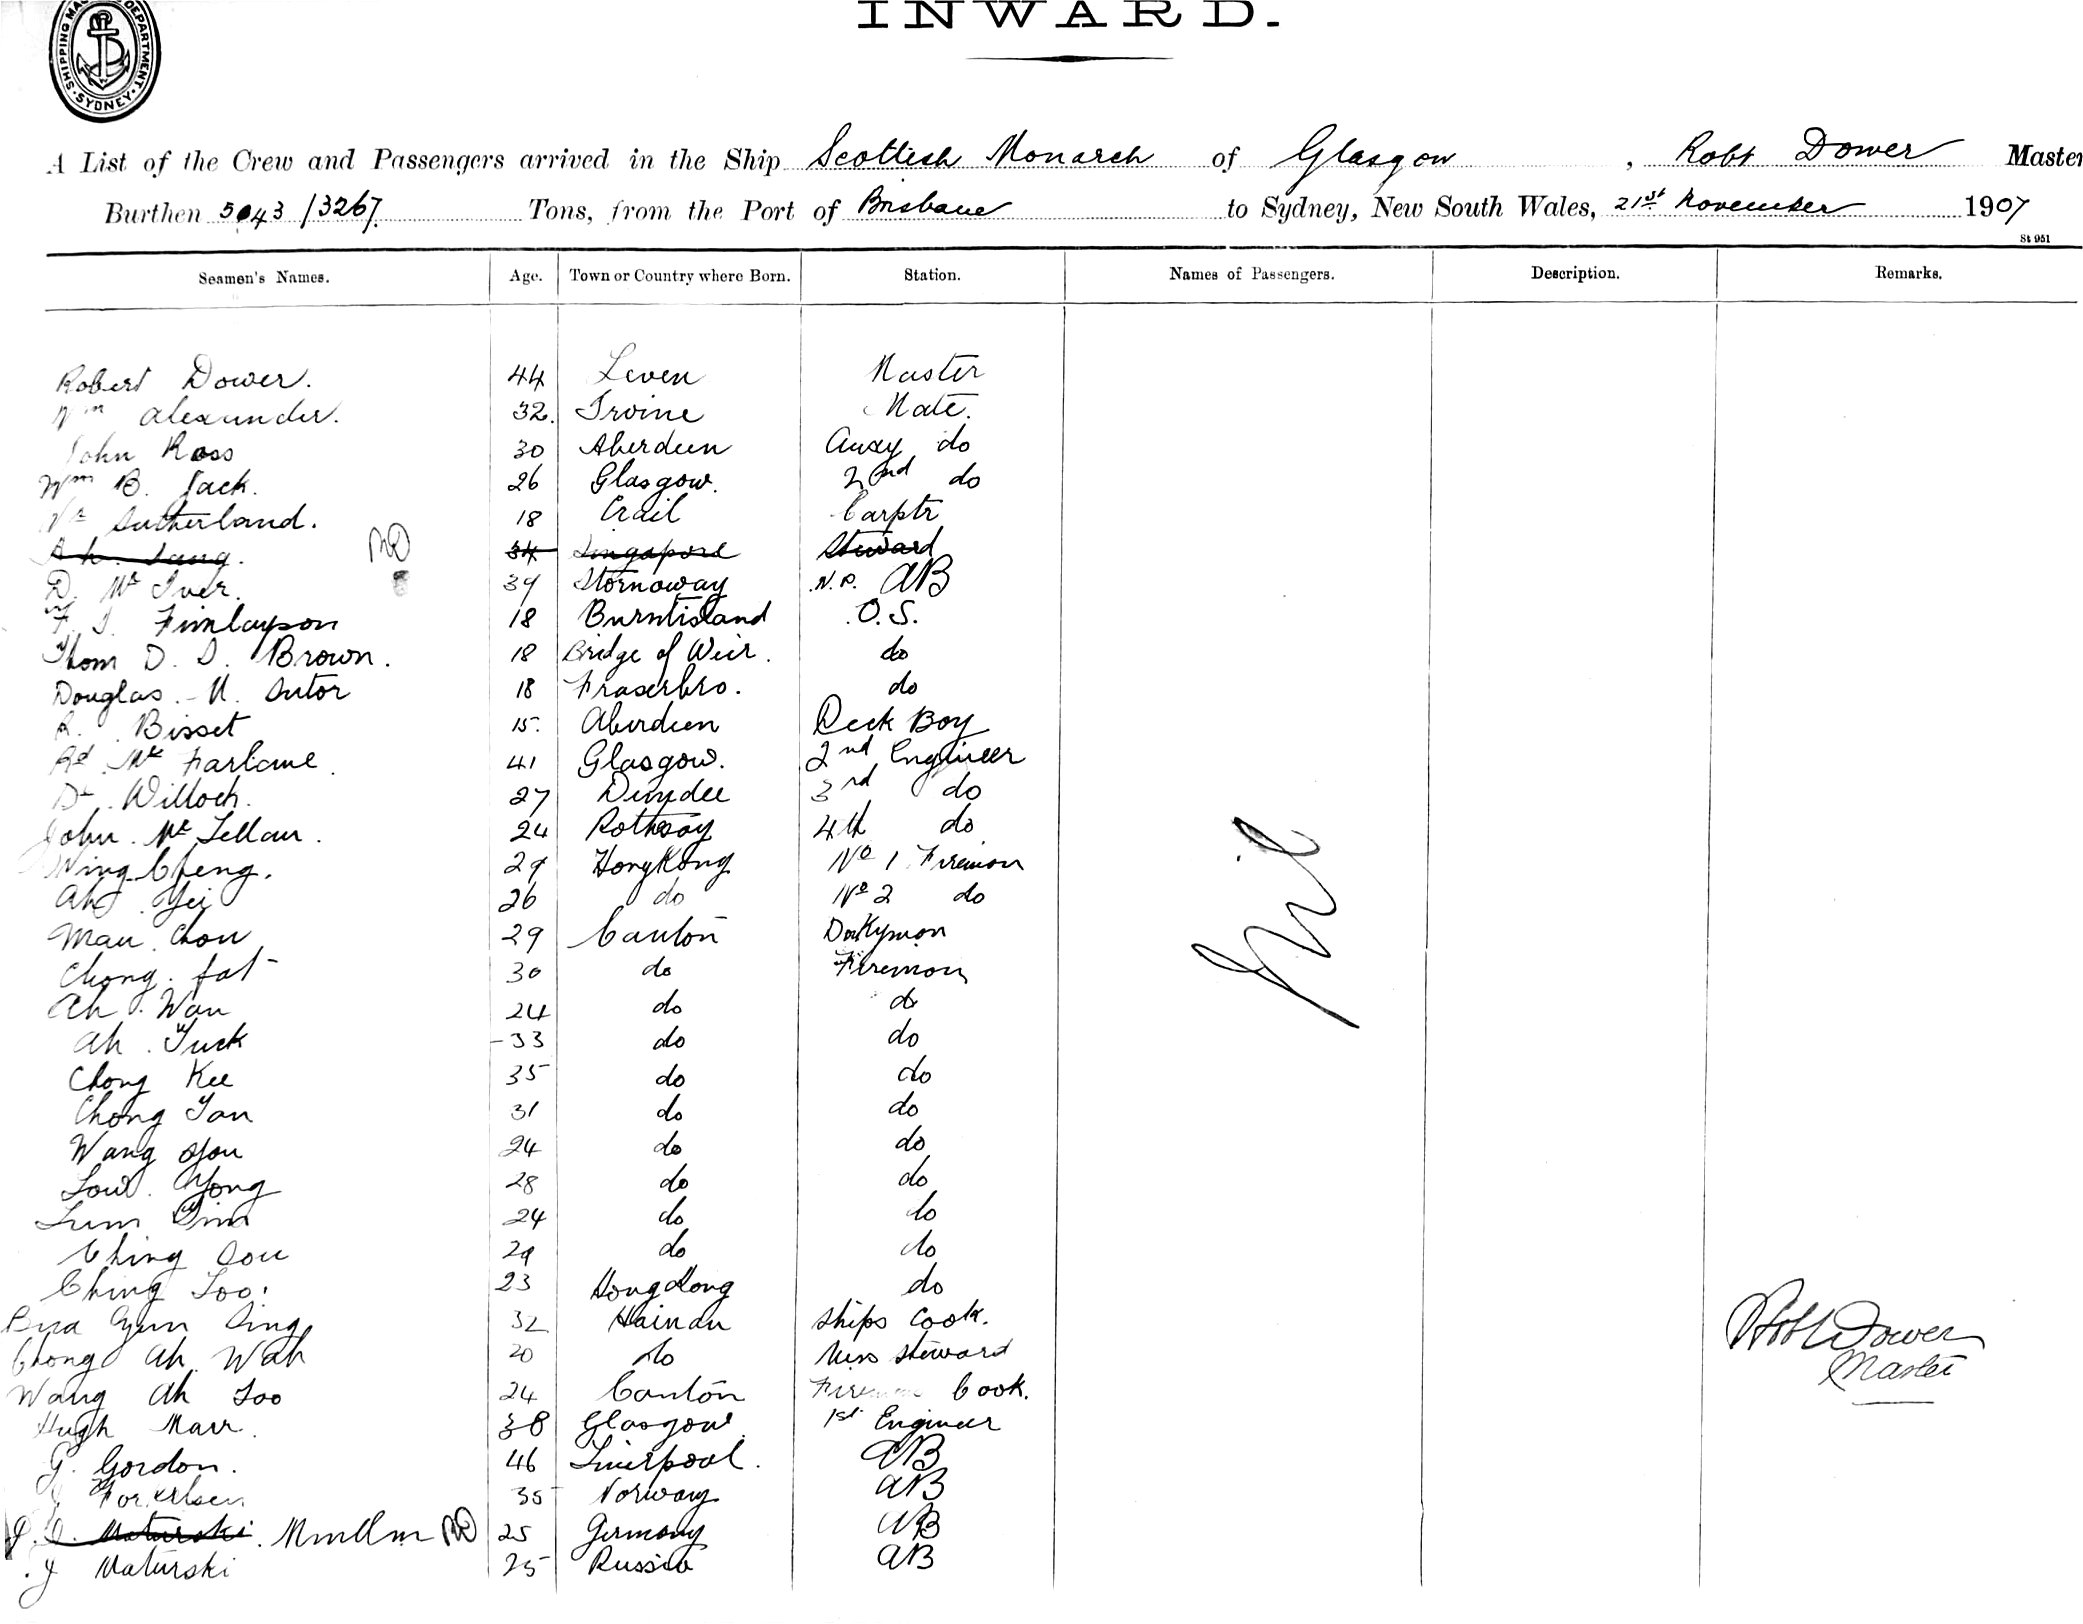 INWARD.
SHIPPING MASTER'S DEPARTMENT. SYDNEY.
A List of the Crew and Passengers arrived in the Ship Scottish Monarch of Glasgow, Robt Dower Master
Burthen 5043/3267 Tons, from the Port of Brisbane to Sydney, New South Wales, 21st November 1907
St 951
Seamen's Names. Age. Town or Country where Born. Station. Names of Passengers. Description. Remarks.
Robert Dower. 44 Leven Master
Wm Alexander. 32. Irvine Mate.
John Ross 30 Aberdeen Auxy do
Wm B. Jack. 26 Glasgow. 2nd do
Sutherland. 18 Crail Carptr
Ah. Sang. RD 34 Singapore Steward
D. Mc Iver. 39 Stornoway N.P. AB
Finlayson 18 Burntisland O.S.
Thom D. D. Brown. 18 Bridge of Weir. do
Douglas. Sutor 18 Fraserbro. do
R. Bisset 15. Aberdeen Deck Boy
Rd. Mc Farlane. 41 Glasgow. 2nd Engineer
Willoch. 27 Dundee 3rd do
John. Mc Lellan. 24 Rothsay 4th do
Ning Cheng. 29 HongKong No 1 Firemon
Ah Yei 26 do No 2 do
Man Chou 29 Canton Donkymon
Chong. fat 30 do Firemon
Ah. Wan 24 do do
Ah. Tuck 33 do do
Chong Kee 35 do do
Chong Tan 31 do do
Wang You 24 do do
Low. Yong 28 do do
Lum Dim 24 do do
Ching Sou 29 do do
Ching Loo. 23 Hong Kong do
Bua Gun Sing 32 Hainan Ships Cook.
Chong Ah Wah 20 do Mess Steward
Wang Ah Loo 24 Canton Firemen Cook.
Hugh Marr. 38 Glasgow 1st Engineer
G. Gordon. 46 Liverpool. AB
35 Norway AB
Maturski. RD 25 Germany AB
J Maturski 25 Russia AB
Nil
Robt Dower
Master